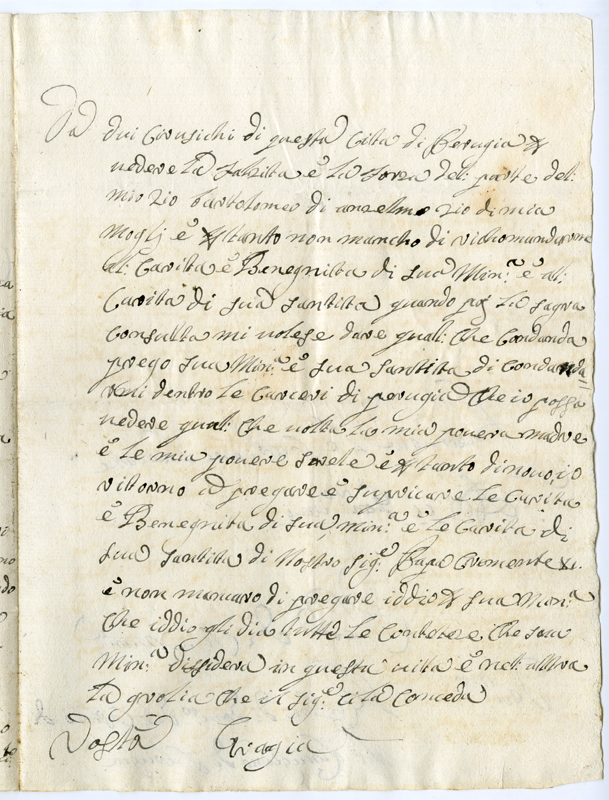 Da dui Cerusichi di questa Citta di Perugia &
uedere la falzita è la forza del: parte del:
mio zio bartolomeo di anzelmo zio di mia
moglj è & tanto non mancho di richomandarme
al: Carita è Benegnita di sua Min:ª è al:
Carita di sua santita quando poj la sagra
Consulta mi uolese dare qual: che Condanda
prego sua Min:ª è sua santita di Condanda
rmi dentro le Carceri di perugia Che io possa
uedere qual: che uolta la mia pouera madre
è le mia pouere sorele è & tanto di nouo io
ritorno id pregare è supricare le Carita
è Benegnita di sua min:ª è le Carita di
sua santita di Nostro sig:e Papa Cremente XI.
è non mancaro di pregare iddio & sua Min:ª
Che iddio gli dia tutte le Conteteze Che sua
Min:ª dissidera in questa uita è nel: alltra
la grolia che il sig:e ci la Conceda
Dogta Gragia